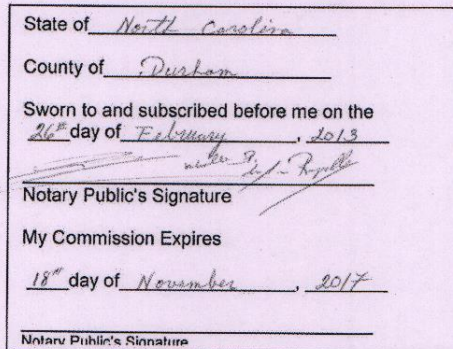 State of North Carolina
County of Durham
Sworn to and subscribed before me on the
26th day of February, 2013
Notary Public's Signature
My Commission Expires
18th day of November, 2017
Notary Public's Signature